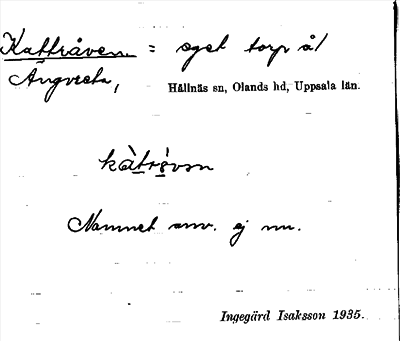 Kattråven = eget torp å/
Ängvreta,
Hållnäs sn, Olands hd, Uppsala län.
kàtrô̱vən
Namnet anv. ej nu.
Ingegärd Isaksson 1935.